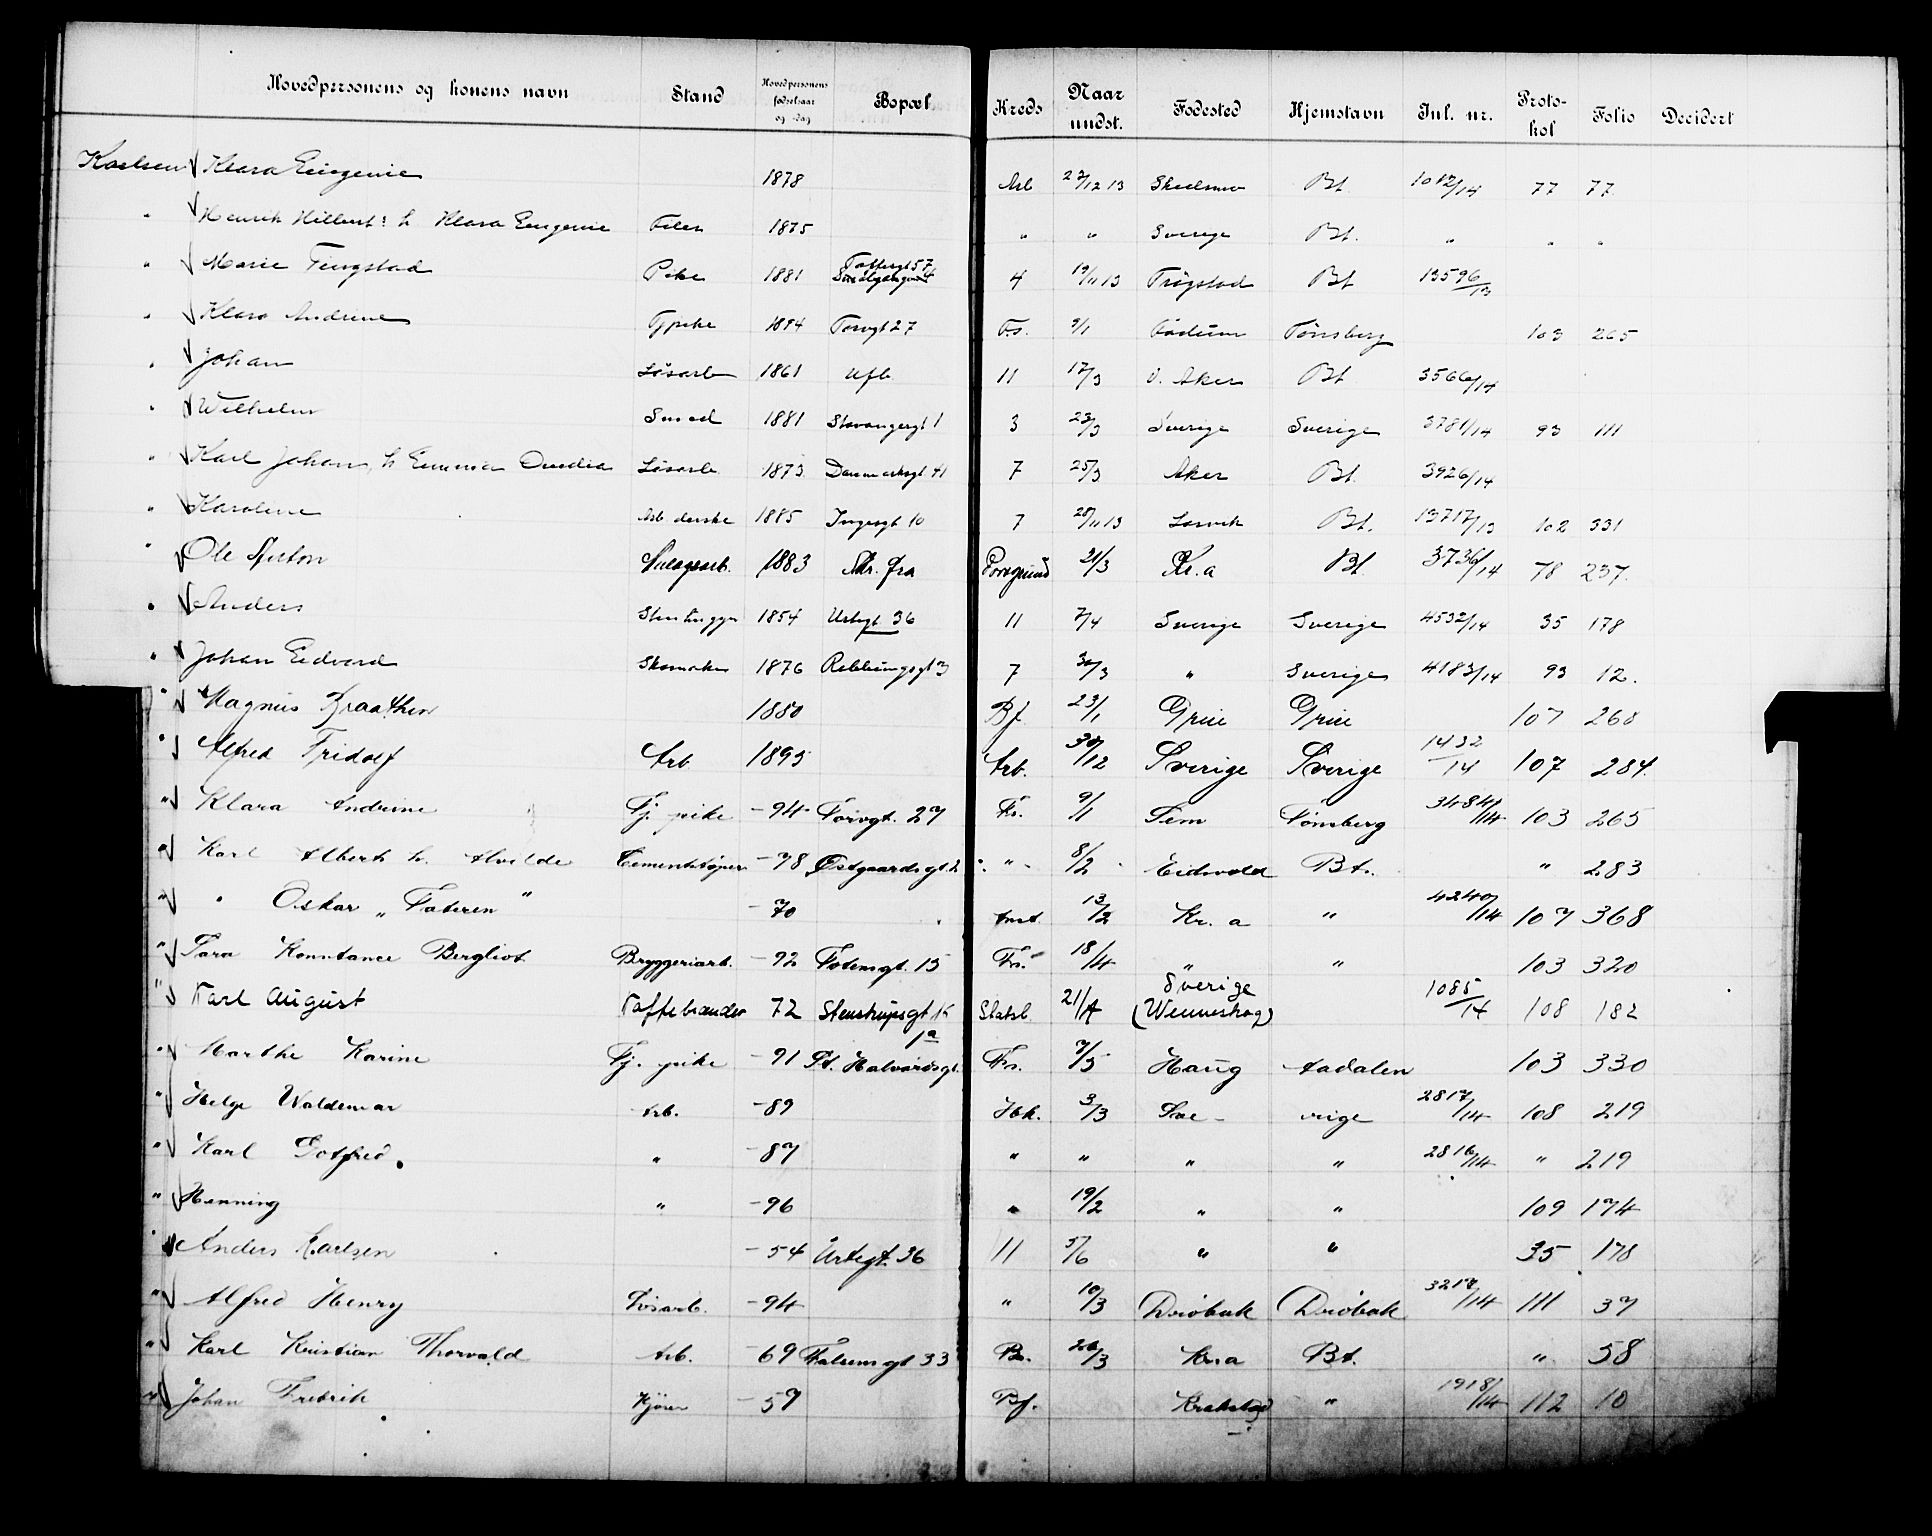 Hovedpersonens og konens navn Stand Hovedpersonens fødselsaar og -dag Bopæl Kreds Naar undst. Fødested Hjemstavn Inl. nr. Protokol Folio Decidert
Karlsen Klara Eugenie 1878 Arb 27/12 13 Bt. 1012/14 77 77
" Henrik Hilbert: h Klara Eugenie Filer 1875 " " Sverige Bt. " " "
" Marie Tingstad Pike 1881 Toftesgt 57 4 19/11 13 Trøgstad Bt 13596/13
" Klara Andrine Tjpike 1894 Torvgt 27 Fs. 9/1 Tønsberg 103 265
" Johan Løsarb 1861 Ufb 11 17/3 V. Aker Bt 3566/14
" Wilhelm Smed 1881 Stavangergt 1 3 23/3 Sverige Sverige 3781/14 93 111
" Karl Johan, h Emma Ovidia Løsarb 1873 Danmarksgt 41 7 25/3 Aker Bt. 3926/14
" Karoline Arb. derske 1885 Ingesgt 10 7 28/11 13 Larvik Bt. 13717/13 102 331
" Ole 1883 Mdr. fra Porsgrund 21/3 Kr.a Bt. 3736/14 78 237.
" Anders Stenhugger 1854 Urtegt 36 11 7/4 Sverige Sverige 4532/14 35 178
" Johan Edvard Skomaker 1876 Røhlingsgt 3 7 30/3 " Sverige 4183/14 93 12.
" Magnus Braathen 1880 Bf 23/1 Grue Grue 107 268
" Alfred Fridolf Arb 1895 Arb. 30/12 Sverige Sverige 1432/14 107 284.
" Klara Andrine Tj. pike - 94 Torvgt. 27 Fs. 9/1 Sem Tønsberg 3484/14 103 265
" Karl Albert h. Alvilde Cementstøper - 78 Østgaardsgt. 2 " 8/2 Eidsvold Bt. " 283
" " Oskar „ Fateren " - 70 Anst. 13/2 Kr. a " 4240/14 107 368
" Sara Konstance Bergliot Bryggeriarb. - 92 Totensgt. 15 Fs. 18/4 " " 103 320
" Karl August Kaffebrænder 72 Stenstrupsgt 15 Statsb. 21/4 Sverige (Wenneskog) 1085/14 108 182
" Marthe Karine Tj. pike - 91 St. Halvardsgt. 1a Fs. 7/5 Haug Aadalen 103 330
" Helge Waldemar Arb. - 89 Hbk. 3/3 Sve - rige 2817/14 108 219
" Karl Gotfred. " - 87 " " " " 2816/14 " 219
" Henning " - 96 " 19/2 " " 109 174
" Anders Karlsen - 54 Urtegt. 36 11 5/6 " " 35 178
" Alfred Henry Løsarb. - 94 " 10/3 Drøbak Drøbak 3217/14 111 37
" Karl Kristian Thorvald Arb. - 69 Falsensgt 33 Bs. 26/3 Kr.a Bt. " 58
" Johan Fredrik Kjører - 57 Bf. Krakstad " 1918/14 112 10